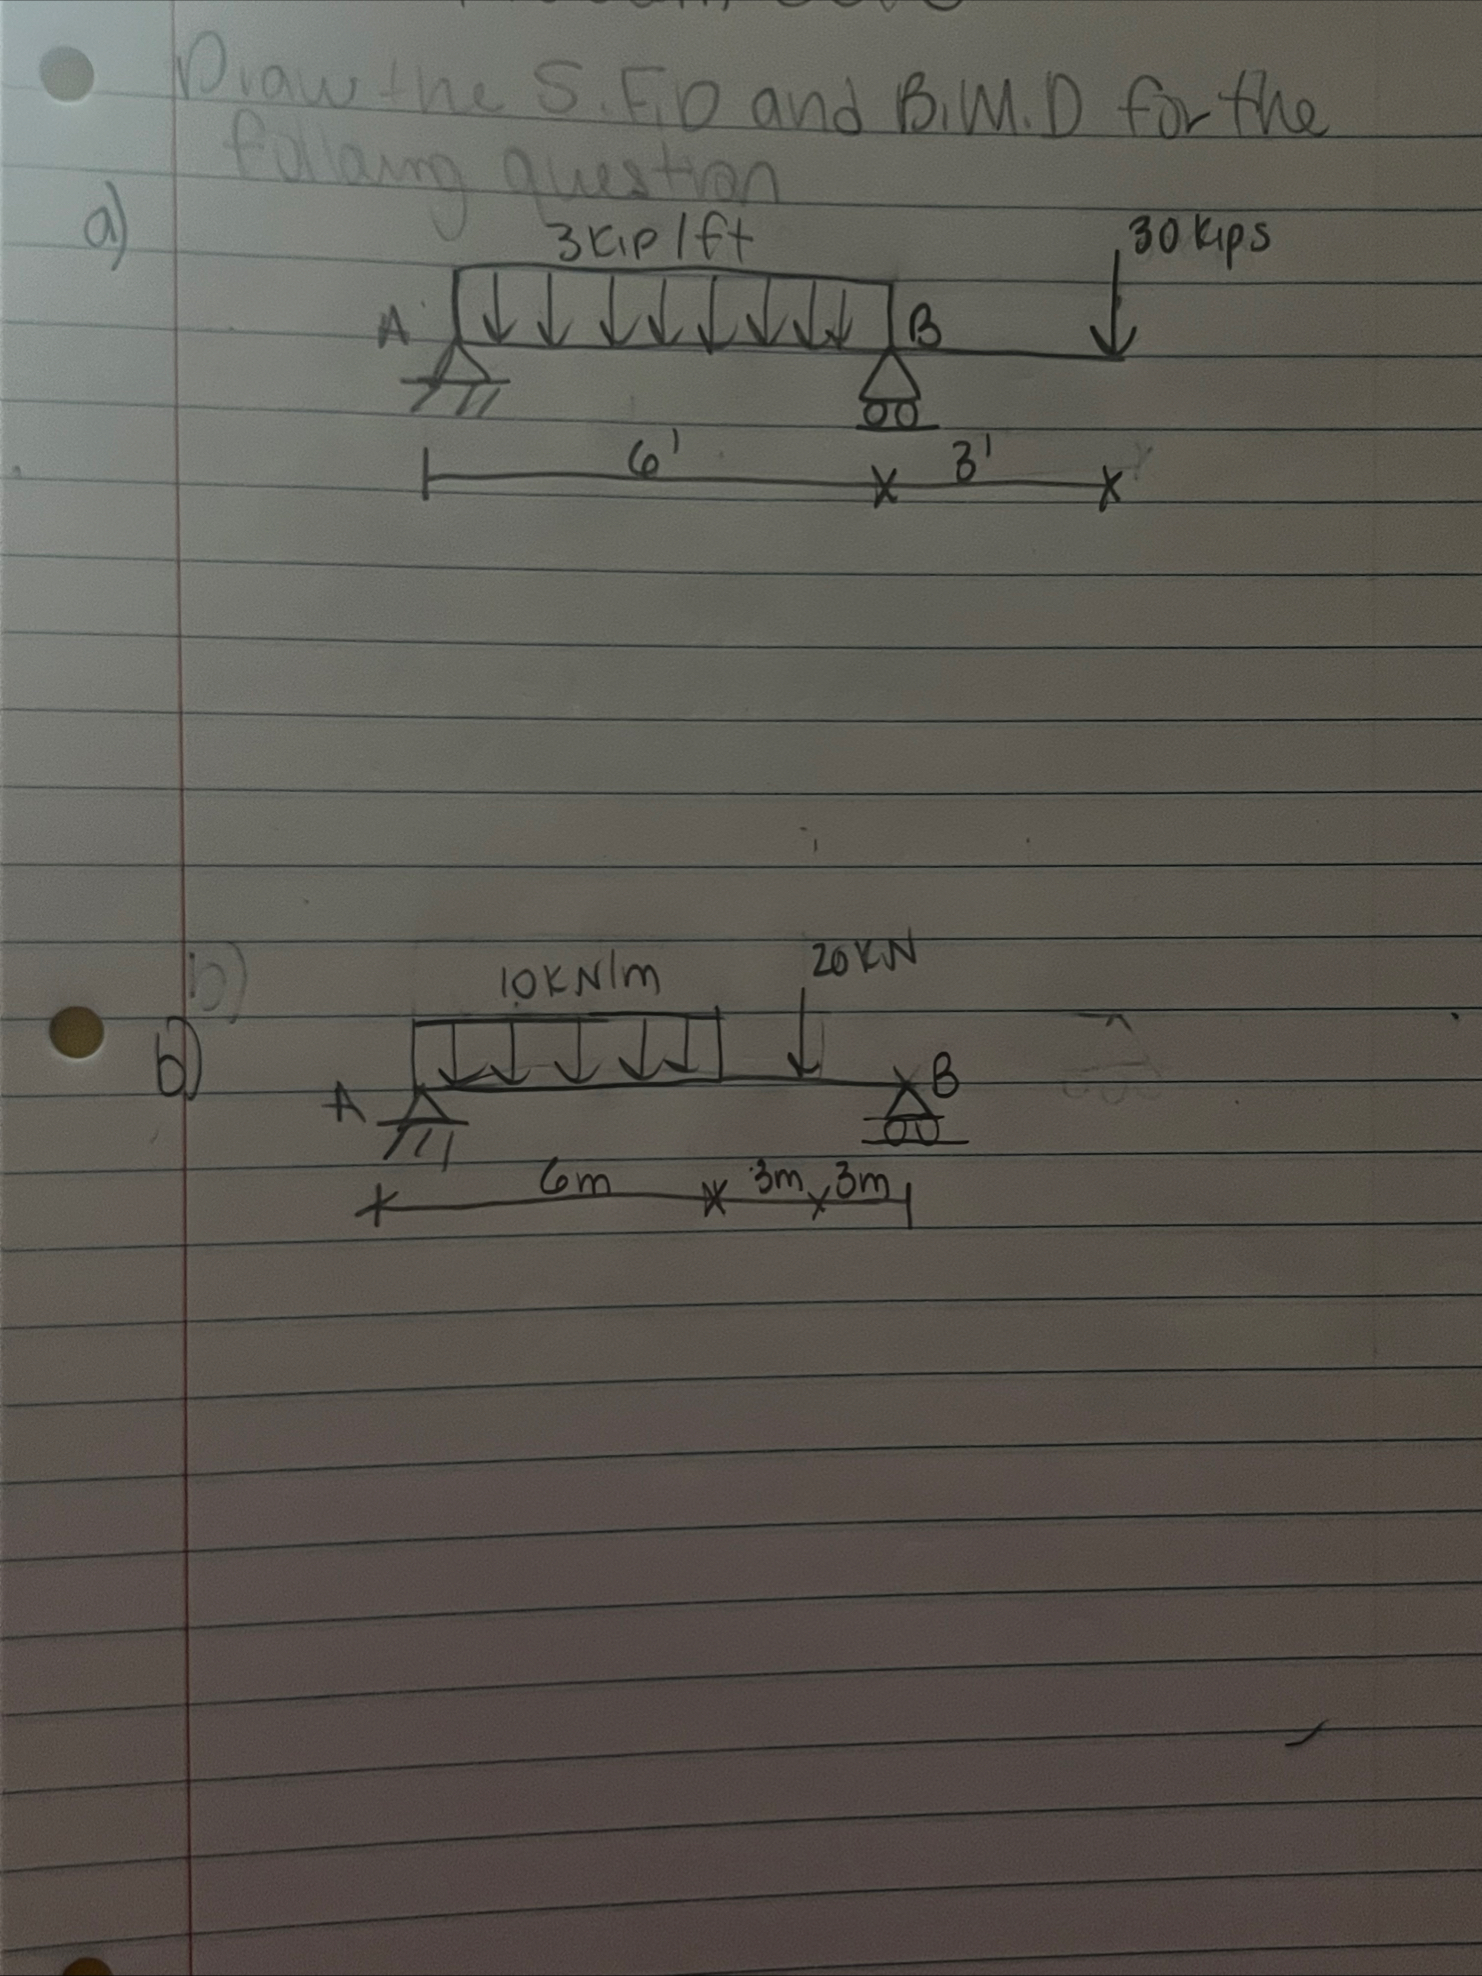 Draw the S.F.D and B.M.D for the
following question
a)
3kip/ft
30 kips
A
B
6'
3'
b)
10KN/m
20KN
b)
A
B
6m
3m
3m